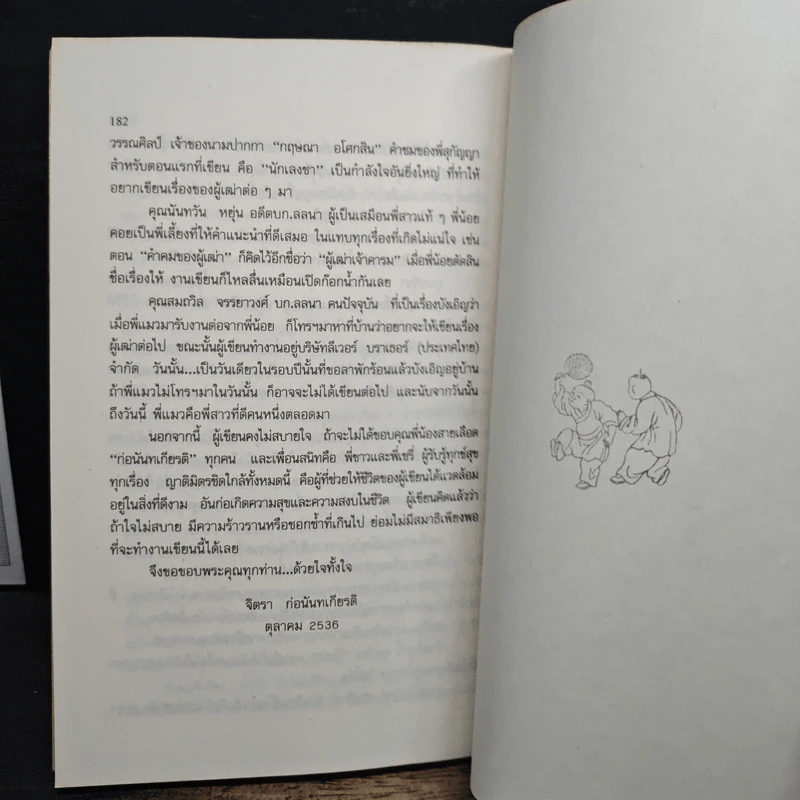 182
วรรณศิลป์ เจ้าของนามปากกา “กฤษณา อโศกสิน” คำชมของพี่สุกัญญา
สำหรับตอนแรกที่เขียน คือ “นักเลงชา” เป็นกำลังใจอันยิ่งใหญ่ ที่ทำให้
อยากเขียนเรื่องของผู้เฒ่าต่อ ๆ มา
คุณนันทวัน หยุ่น อดีตบก.ลลนา ผู้เป็นเสมือนพี่สาวแท้ ๆ พี่น้อย
คอยเป็นพี่เลี้ยงที่ให้คำแนะนำที่ดีเสมอ ในแทบทุกเรื่องที่เกิดไม่แน่ใจ เช่น
ตอน “คำคมของผู้เฒ่า” ก็คิดไว้อีกชื่อว่า “ผู้เฒ่าเจ้าคารม” เมื่อพี่น้อยตัดสิน
ชื่อเรื่องให้ งานเขียนก็ไหลลื่นเหมือนเปิดก๊อกน้ำกันเลย
คุณสมถวิล จรรยาวงศ์ บก.ลลนา คนปัจจุบัน ที่เป็นเรื่องบังเอิญว่า
เมื่อพี่แมวมารับงานต่อจากพี่น้อย ก็โทรฯมาหาที่บ้านว่าอยากจะให้เขียนเรื่อง
ผู้เฒ่าต่อไป ขณะนั้นผู้เขียนทำงานอยู่บริษัทลีเวอร์ บราเธอร์ (ประเทศไทย)
จำกัด วันนั้น...เป็นวันเดียวในรอบปีนั้นที่ขอลาพักร้อนแล้วบังเอิญอยู่บ้าน
ถ้าพี่แมวไม่โทรฯมาในวันนั้น ก็อาจจะไม่ได้เขียนต่อไป และนับจากวันนั้น
ถึงวันนี้ พี่แมวคือพี่สาวที่ดีคนหนึ่งตลอดมา
นอกจากนี้ ผู้เขียนคงไม่สบายใจ ถ้าจะไม่ได้ขอบคุณพี่น้องสายเลือด
“ก่อนันทเกียรติ” ทุกคน และเพื่อนสนิทคือ พี่ชาวและพี่เชรี่ ผู้รับรู้ทุกข์สุข
ทุกเรื่อง ญาติมิตรชิดใกล้ทั้งหมดนี้ คือผู้ที่ช่วยให้ชีวิตของผู้เขียนได้แวดล้อม
อยู่ในสิ่งที่ดีงาม อันก่อเกิดความสุขและความสงบในชีวิต ผู้เขียนคิดแล้วว่า
ถ้าใจไม่สบาย มีความร้าวรานหรือชอกช้ำที่เกินไป ย่อมไม่มีสมาธิเพียงพอ
ที่จะทำงานเขียนนี้ได้เลย
จึงขอขอบพระคุณทุกท่าน...ด้วยใจทั้งใจ
จิตรา ก่อนันทเกียรติ
ตุลาคม 2536